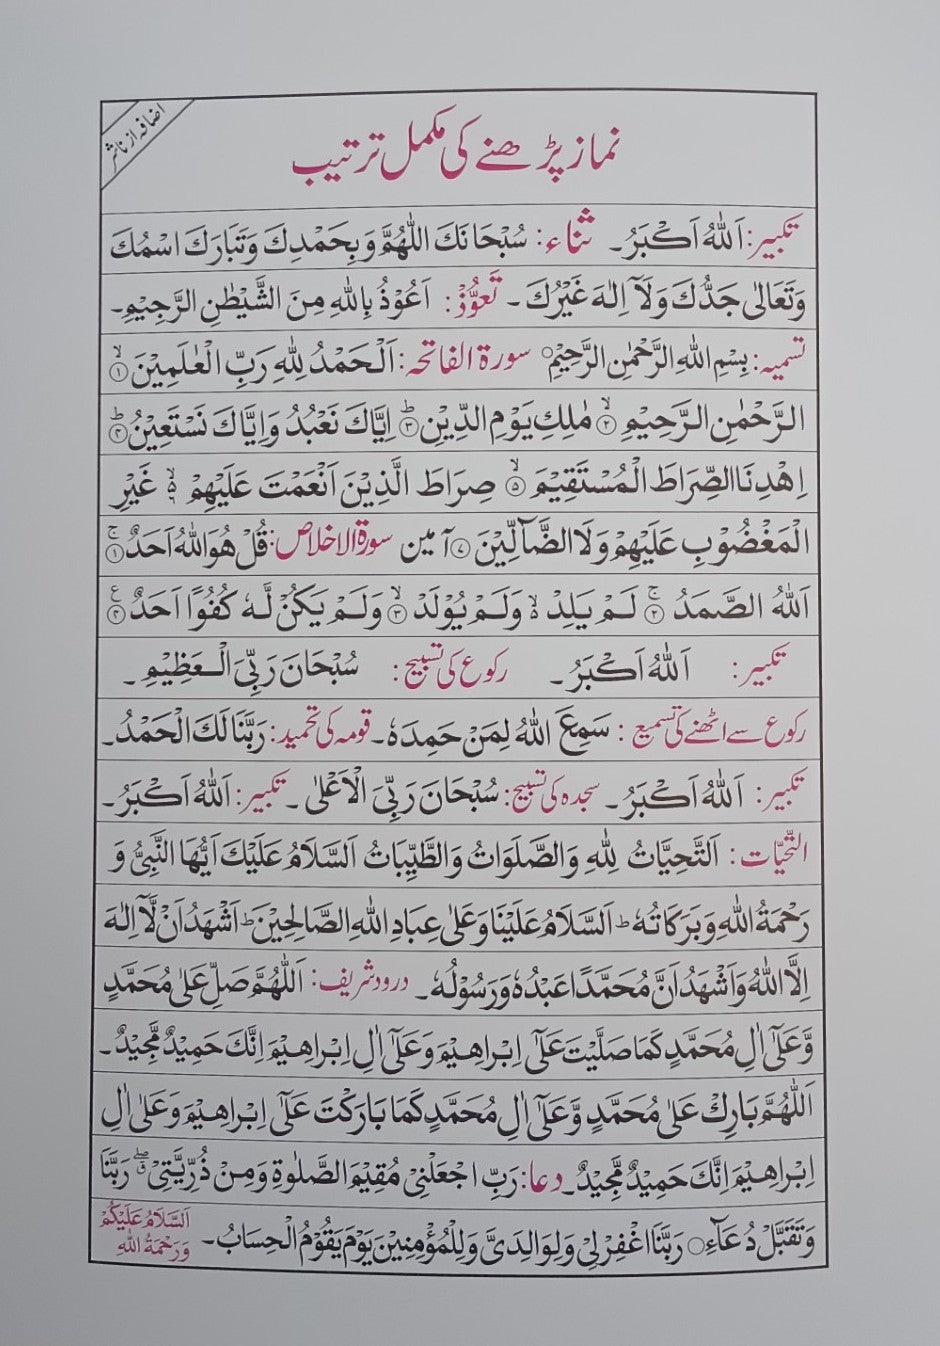 اضافہ از ناشر
نماز پڑھنے کی مکمل ترتیب
تکبیر: اَللّٰهُ اَكْبَرُ۔ ثناء: سُبْحَانَكَ اللّٰهُمَّ وَبِحَمْدِكَ وَتَبَارَكَ اسْمُكَ
وَتَعَالٰى جَدُّكَ وَلَآ اِلٰهَ غَيْرُكَ۔ تعوُّذ: اَعُوْذُ بِاللّٰهِ مِنَ الشَّيْطٰنِ الرَّجِيْمِ۔
تسمیہ: بِسْمِ اللّٰهِ الرَّحْمٰنِ الرَّحِيْمِ○ سورة الفاتحہ: اَلْحَمْدُ لِلّٰهِ رَبِّ الْعٰلَمِيْنَ ۙ﴿۱﴾
الرَّحْمٰنِ الرَّحِيْمِ ۙ﴿۲﴾ مٰلِكِ يَوْمِ الدِّيْنِ ؕ﴿۳﴾ اِيَّاكَ نَعْبُدُ وَاِيَّاكَ نَسْتَعِيْنُ ؕ﴿۴﴾
اِهْدِنَا الصِّرَاطَ الْمُسْتَقِيْمَ ۙ﴿۵﴾ صِرَاطَ الَّذِيْنَ اَنْعَمْتَ عَلَيْهِمْ ۙ۬ۦ غَيْرِ
الْمَغْضُوْبِ عَلَيْهِمْ وَلَا الضَّآلِّيْنَ ﴿۷﴾ آمین سورة الاخلاص: قُلْ هُوَ اللّٰهُ اَحَدٌ ۚ﴿۱﴾
اَللّٰهُ الصَّمَدُ ۚ﴿۲﴾ لَمْ يَلِدْ ۙ وَلَمْ يُوْلَدْ ۙ﴿۳﴾ وَلَمْ يَكُنْ لَّهٗ كُفُوًا اَحَدٌ ﴿۴﴾ ع
تکبیر: اَللّٰهُ اَكْبَرُ۔ رکوع کی تسبیح: سُبْحَانَ رَبِّيَ الْعَظِيْمِ۔
رکوع سے اٹھنے کی تسمیع: سَمِعَ اللّٰهُ لِمَنْ حَمِدَهٗ۔ قومہ کی تحمید: رَبَّنَا لَكَ الْحَمْدُ۔
تکبیر: اَللّٰهُ اَكْبَرُ۔ سجدہ کی تسبیح: سُبْحَانَ رَبِّيَ الْاَعْلٰى۔ تکبیر: اَللّٰهُ اَكْبَرُ۔
التّحیّات: اَلتَّحِيَّاتُ لِلّٰهِ وَالصَّلَوَاتُ وَالطَّيِّبَاتُ اَلسَّلَامُ عَلَيْكَ اَيُّهَا النَّبِيُّ وَ
رَحْمَةُ اللّٰهِ وَبَرَكَاتُهٗ ؕ اَلسَّلَامُ عَلَيْنَا وَعَلٰى عِبَادِ اللّٰهِ الصَّالِحِيْنَ ؕ اَشْهَدُ اَنْ لَّآ اِلٰهَ
اِلَّا اللّٰهُ وَاَشْهَدُ اَنَّ مُحَمَّدًا عَبْدُهٗ وَرَسُوْلُهٗ۔ درود شریف: اَللّٰهُمَّ صَلِّ عَلٰى مُحَمَّدٍ
وَّعَلٰٓى اٰلِ مُحَمَّدٍ كَمَا صَلَّيْتَ عَلٰٓى اِبْرَاهِيْمَ وَعَلٰٓى اٰلِ اِبْرَاهِيْمَ اِنَّكَ حَمِيْدٌ مَّجِيْدٌ۔
اَللّٰهُمَّ بَارِكْ عَلٰى مُحَمَّدٍ وَّعَلٰٓى اٰلِ مُحَمَّدٍ كَمَا بَارَكْتَ عَلٰٓى اِبْرَاهِيْمَ وَعَلٰٓى اٰلِ
اِبْرَاهِيْمَ اِنَّكَ حَمِيْدٌ مَّجِيْدٌ۔ دعا: رَبِّ اجْعَلْنِيْ مُقِيْمَ الصَّلٰوةِ وَمِنْ ذُرِّيَّتِيْ ۖق رَبَّنَا
وَتَقَبَّلْ دُعَآءِ○ رَبَّنَا اغْفِرْ لِيْ وَلِوَالِدَيَّ وَلِلْمُؤْمِنِيْنَ يَوْمَ يَقُوْمُ الْحِسَابُ۔ اَلسَّلَامُ عَلَيْكُمْ
وَرَحْمَةُ اللّٰهِ